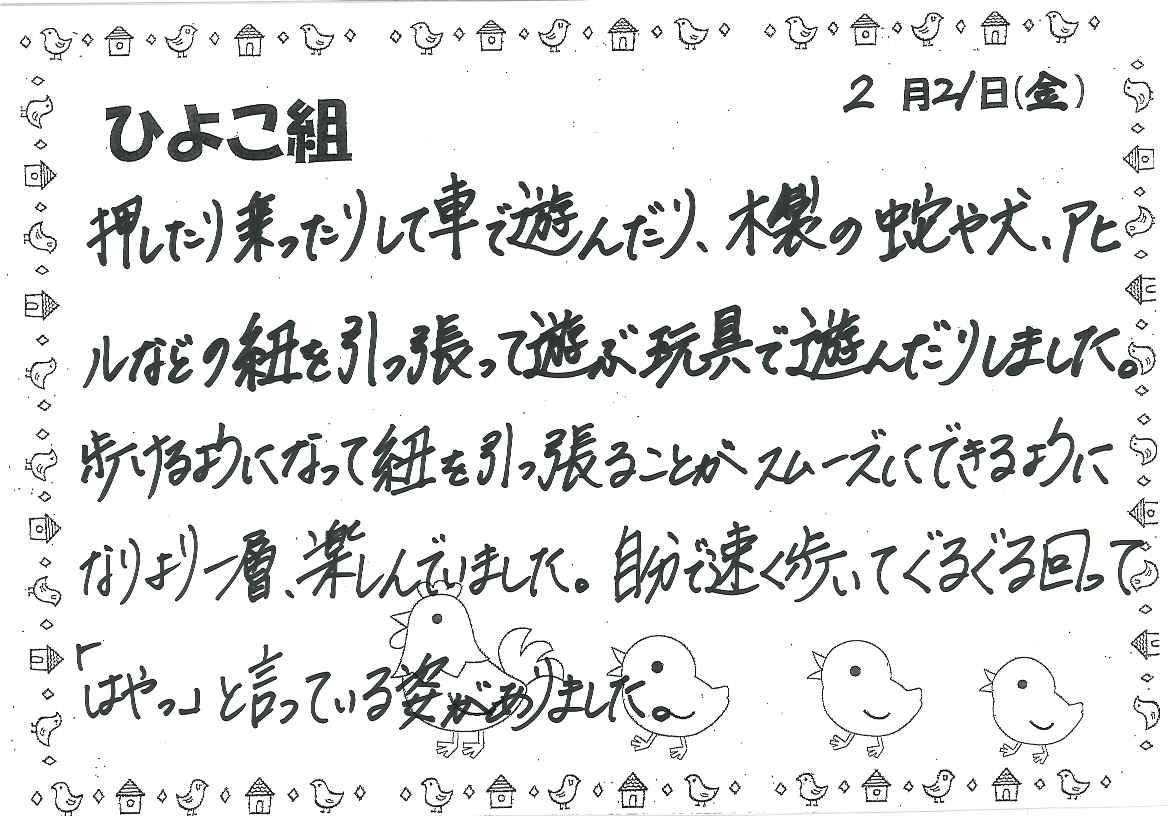 2月21日(金)
ひよこ組
押したり乗ったりして車で遊んだり、木製の蛇や犬、アヒ
ルなどの紐を引っ張って遊ぶ玩具で遊んだりしました。
歩けるようになって紐を引っ張ることがスムーズにできるように
なりより一層、楽しんでいました。自分で速く歩いてぐるぐる回って
「はやっ」と言っている姿がありました。